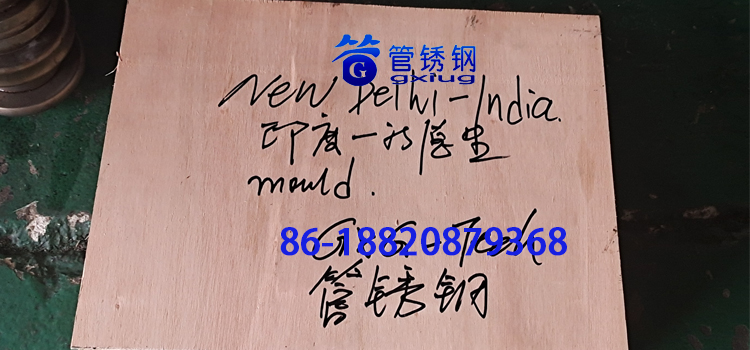 管锈钢
gxiug
New Delhi-India.
印度一
mould.
86-18820879368
管锈钢